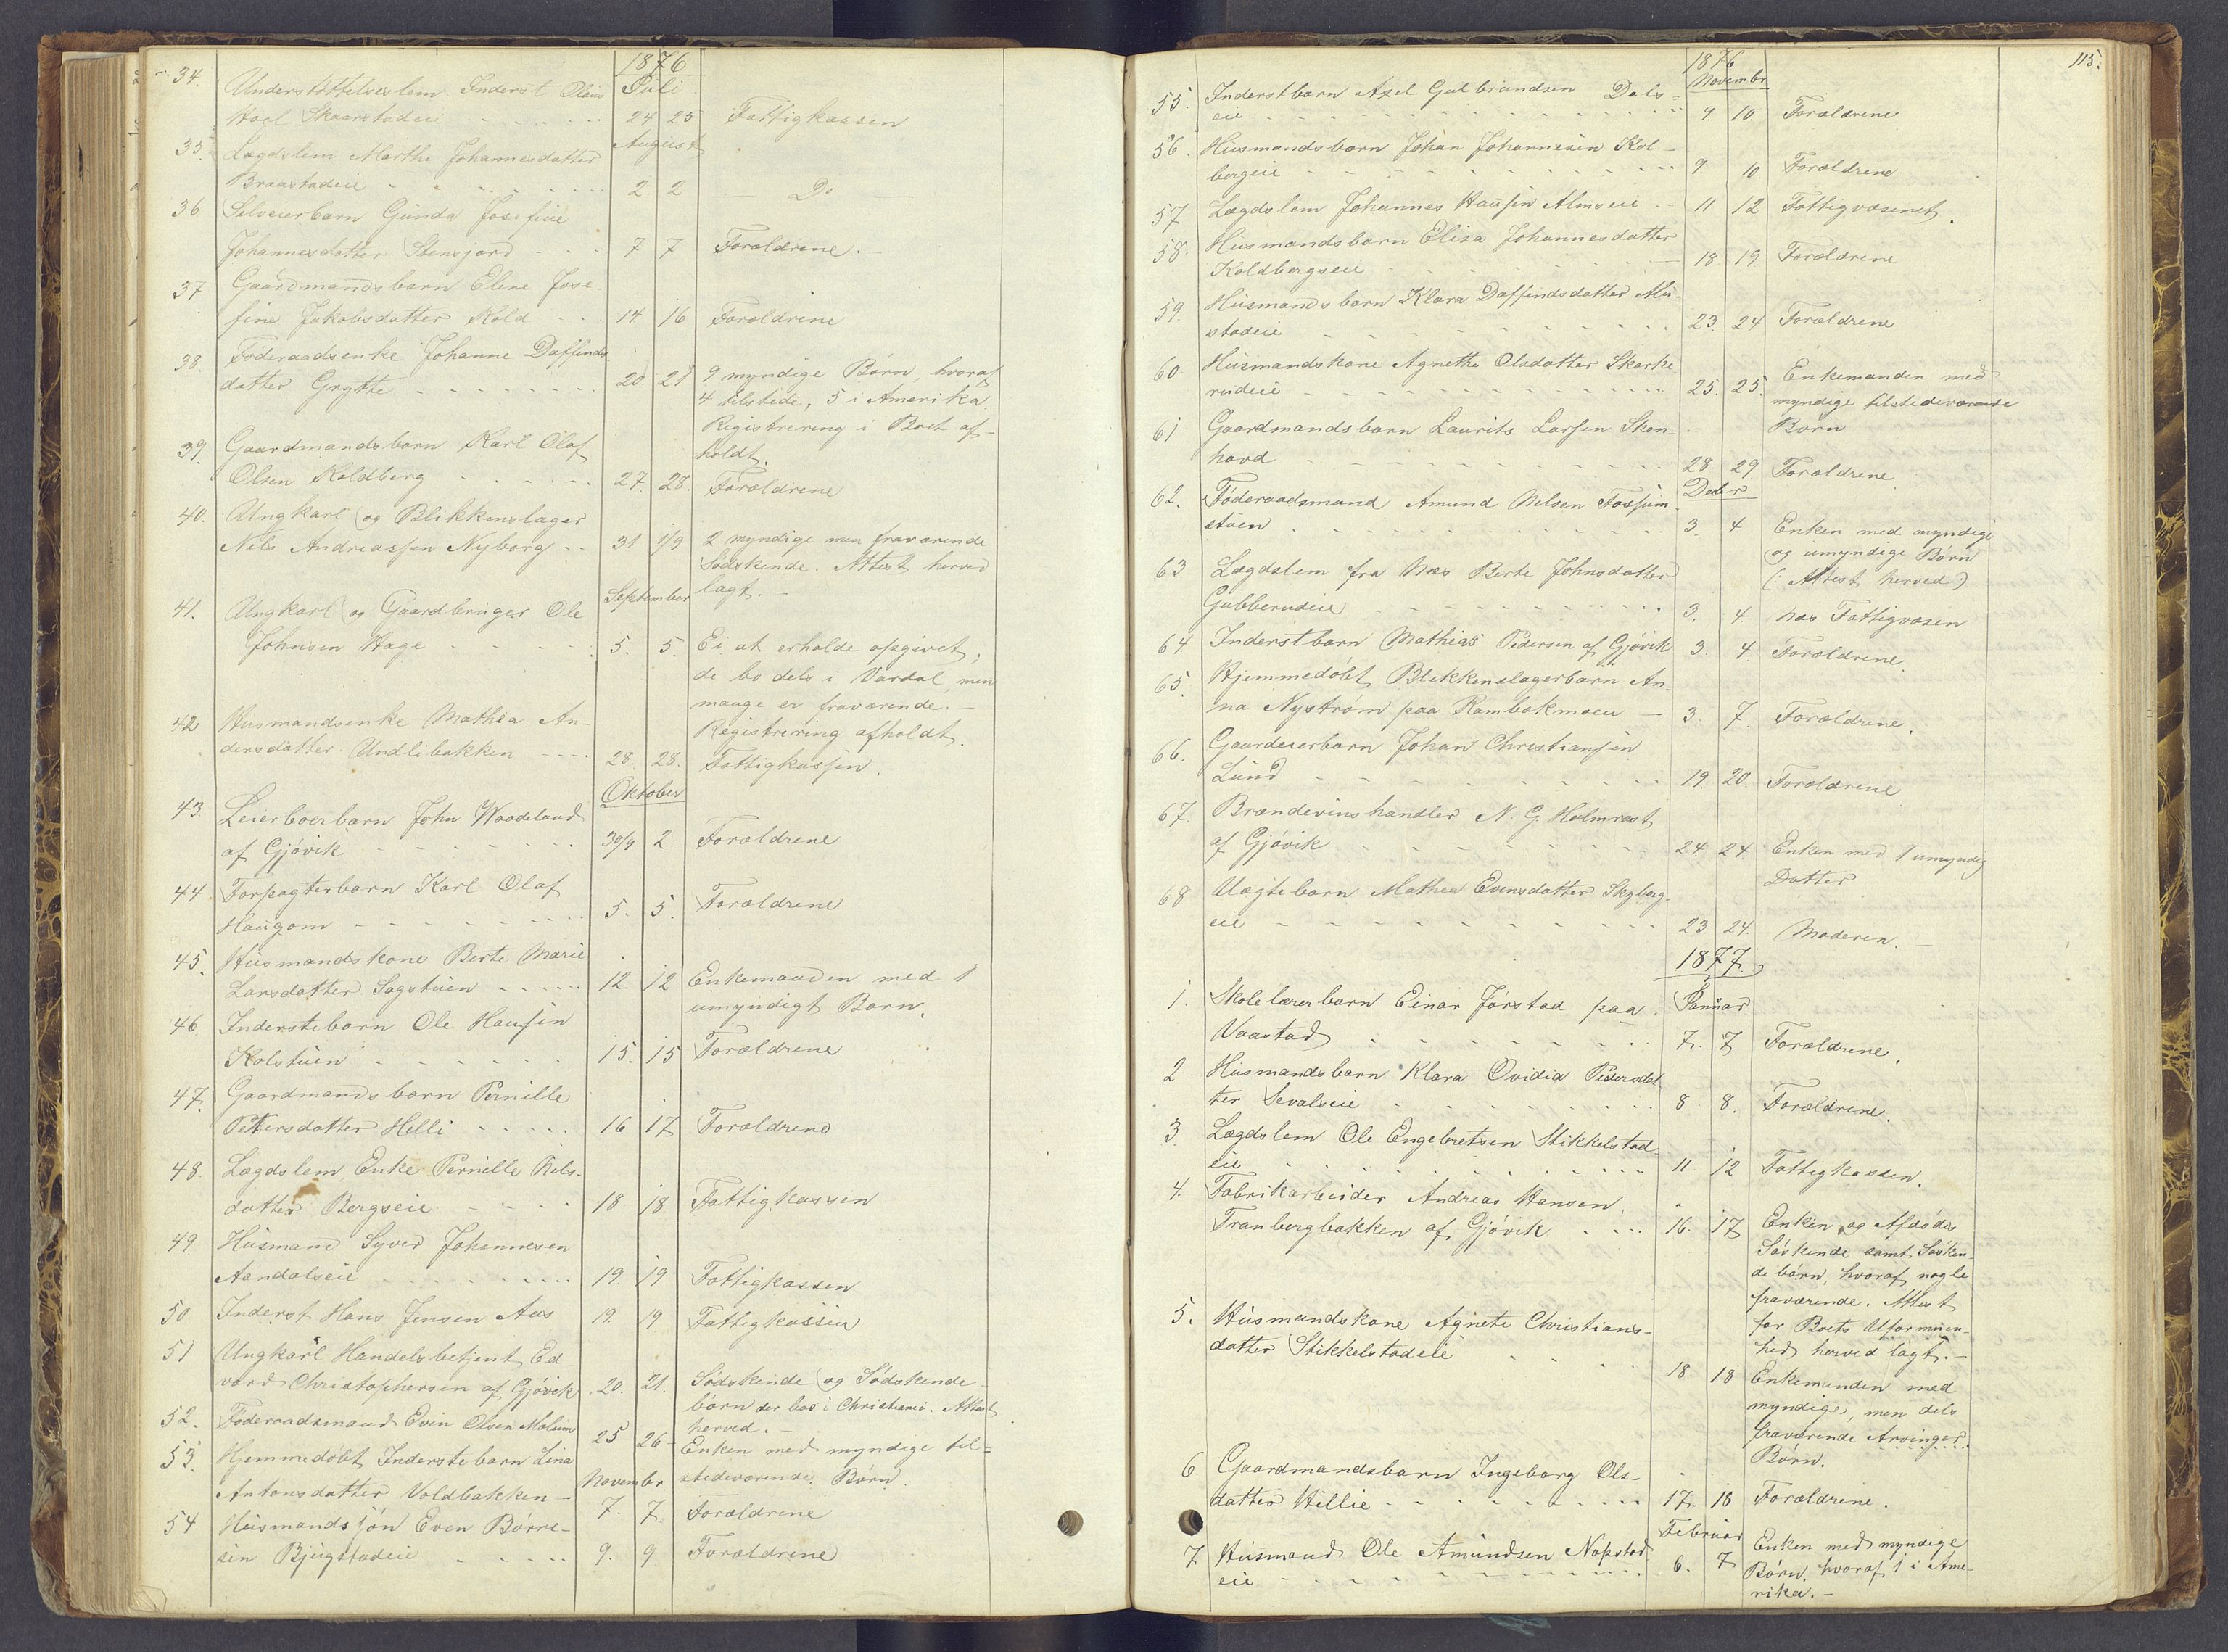 1876
Juli
34. Understøttelseslem Inderst
Skaarstadeie 24 25 Fattigkassen
August
35. Lægdslem Marthe Johannesdatter
Braastadeie 2. 2 Do
36 Selveierbarn Gunda Josefine
Johannesdatter Stensjord 7 7 Forældrene.
37 Gaardmandsbarn Eline Jose-
fine Jakobsdatter Kold 14 16 Forældrene
38. Føderaadsenke Johanne Daffinds
datter Grytte 20. 21 9 myndige Børn, hvoraf
4 tilstede, 5 i Amerika
Registrering i Boet af-
holdt.
39. Gaardmandsbarn Karl Olaf
Olsen Koldberg 27. 28. Forældrene
40. Ungkarl og Blikkenslager
Nils Andreassen Nyborg 31 1/9 2 myndige men fraværende
Sødskende. Attest herved
lagt.
September
41. Ungkarl og Gaardbruger Ole
Johnsen Hage 5. 5. Ei at erholde opgivet,
de bo dels i Vardal, men
mange er fraværende.
Registrering afholdt.
42 Husmandsenke Mathea An-
dersdatter Undlibakken 28. 28. Fattigkassen.
Oktober
43. Leierboerbarn John Waadeland
af Gjøvik 30/9 2 Forældrene
44 Forpagterbarn Karl Olaf
Haugom 5. 5. Forældrene
45. Husmandskone Berte Marie
Larsdatter Sagstuen 12. 12 Enkemanden med 1
umyndigt Barn.
46 Inderstebarn Ole Hansen
Kolstuen 15. 15 Forældrene
47. Gaardmandsbarn Pernille
Pettersdatter Helli 16 17 Forældrene
48. Lægdslem, Enke Pernille Nils-
datter Bergseie 18 18 Fattigkassen
49 Husmand Syver Johannesen
Aandalseie 19. 19 Fattigkassen
50 Inderst Hans Jensen Aas 19. 19 Fattigkassen
51 Ungkarl Handelsbetjent Ed-
vard Christophersen af Gjøvik 20. 21. Sødskende og Sødskende-
børn der boe i Christiania. Attest
herved.
52. Føderaadsmand Even Olsen Molum 25 26 Enken med myndige til-
stedeværende Børn
53. Hjemmedøbt Inderstebarn Lina
November
Antonsdatter Voldbakken 7. 7. Forældrene
54. Husmandssøn Even Børre-
sen Bjugstadeie 9. 9 Forældrene
115.
1876
Novembr
55. Inderstbarn Axel Gulbrandsen Dals-
eie 9. 10. Forældrene
56. Husmandsbarn Johan Johannesen Kol-
bergeie 9 10 Forældrene
57. Lægdslem Johannes Hansen Almseie 11 12 Fattigvæsenet.
58. Husmandsbarn Elisa Johannesdatter
Koldbergseie 18 19 Forældrene
59. Husmandsbarn Klara Daffindsdatter Alu-
stadeie 23. 24 Forældrene
60. Husmandskone Agnethe Olsdatter Skarke
rudeie 25. 25. Enkemanden med
myndige tilstedeværende
Børn
61 Gaardmandsbarn Laurits Larsen Skon-
hovd 28. 29. Forældrene
Decbr
62. Føderaadsmand Amund Nilsen Fossum-
stuen 3. 4. Enken med myndige
og umyndige Børn
(: Attest herved)
63 Lægdslem fra Næs Berte Johnsdatter
Gubberudeie 3. 4 Næs Fattigvæsen
64. Inderstbarn Mathias Pedersen af Gjøvik 3. 4. Forældrene.
65. Hjemmedøbt Blikkenslagerbarn An-
na Nystrøm paa Rambækmoen 3. 7. Forældrene.
66. Gaardeierbarn Johan Christiansen
Lund 19. 20. Forældrene
67. Brændevinshandler N. G. Holmrast
af Gjøvik 24. 24 Enken med 1 umyndig
Datter
68 Uægtebarn Mathea Evensdatter Skyberg-
eie 23 24. Moderen.
1877.
1. Skolelærerbarn Einar Jørstad paa Januar
Vaastad 7. 7 Forældrene.
2 Husmandsbarn Klara Ovidia Pedersdat
ter Sevalseie 8 8. Forældrene.
3 Lægdslem Ole Engebretsen Stikkelstad
eie 11. 12 Fattigkassen.
4. Fabrikarbeider Andreas Hansen
Tranbergbakken af Gjøvik 16. 17 Enken og Afdødes
Søskende samt Søsken-
debørn, hvoraf nogle
fraværende. Attest
for Boets Uformuen-
hed herved lagt.
5. Husmandskone Agnete Christians-
datter Stikkelstadeie 18. 18 Enkemanden med
myndige, men dels
fraværende Arvinger.
Børn.
6 Gaardmandsbarn Ingeborg Ols-
datter Hillie 17. 18 Forældrene.
Februar
7 Husmand Ole Amundsen Nøpstad
eie 6. 7 Enken med myndige
Børn, hvoraf 1 i Ame-
rika.